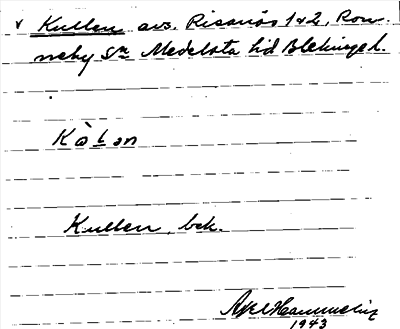 v Kullen avs. Risanäs 1&2, Ron-
neby Sn Medelsta hd Blekinge l.
Kullen, bek.
Axel Hammelin
1943